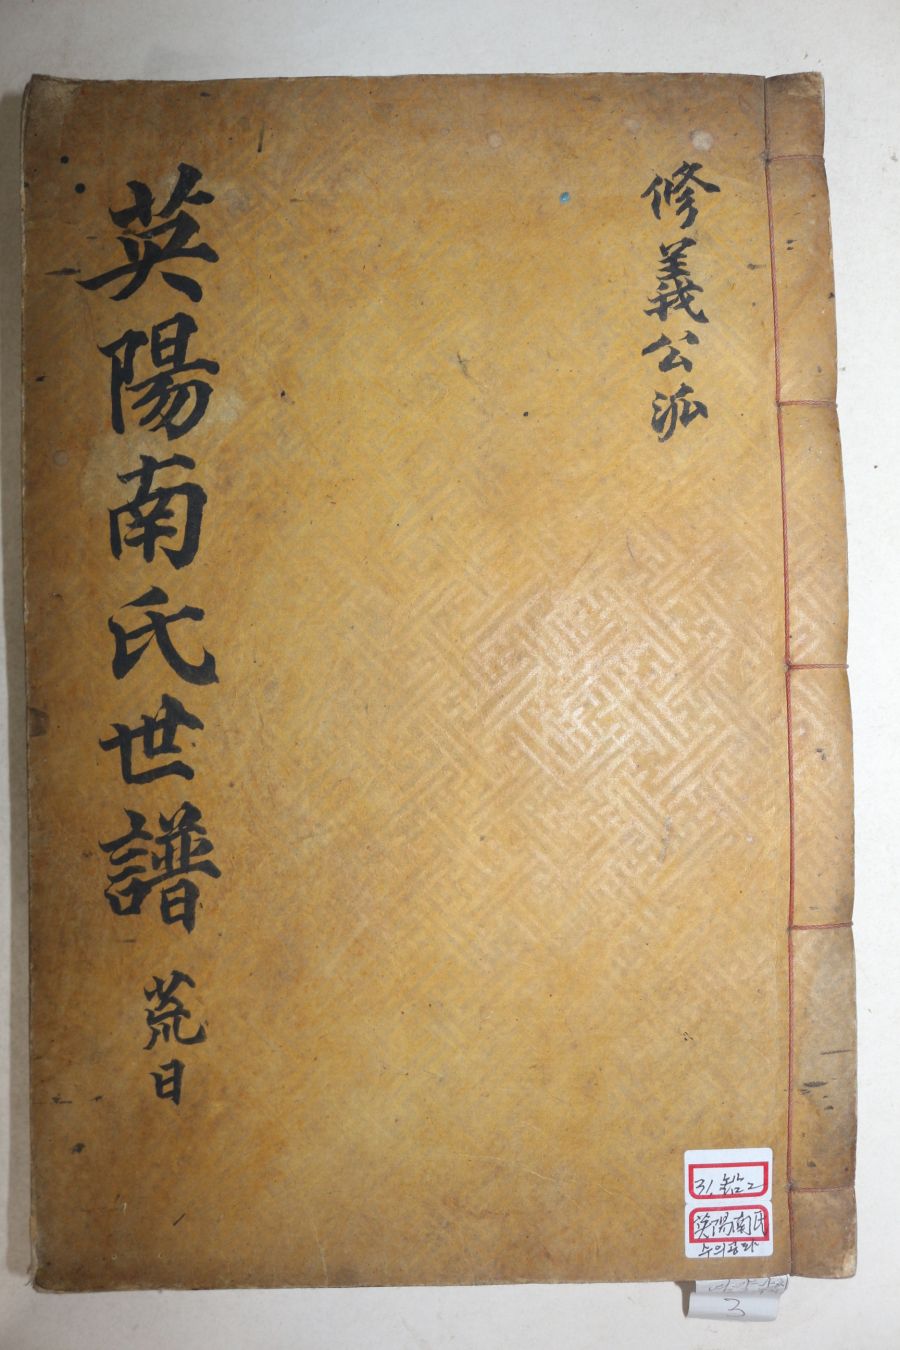 修義公派
英陽南氏世譜 荒日
31.
英陽南氏
수의공파
3